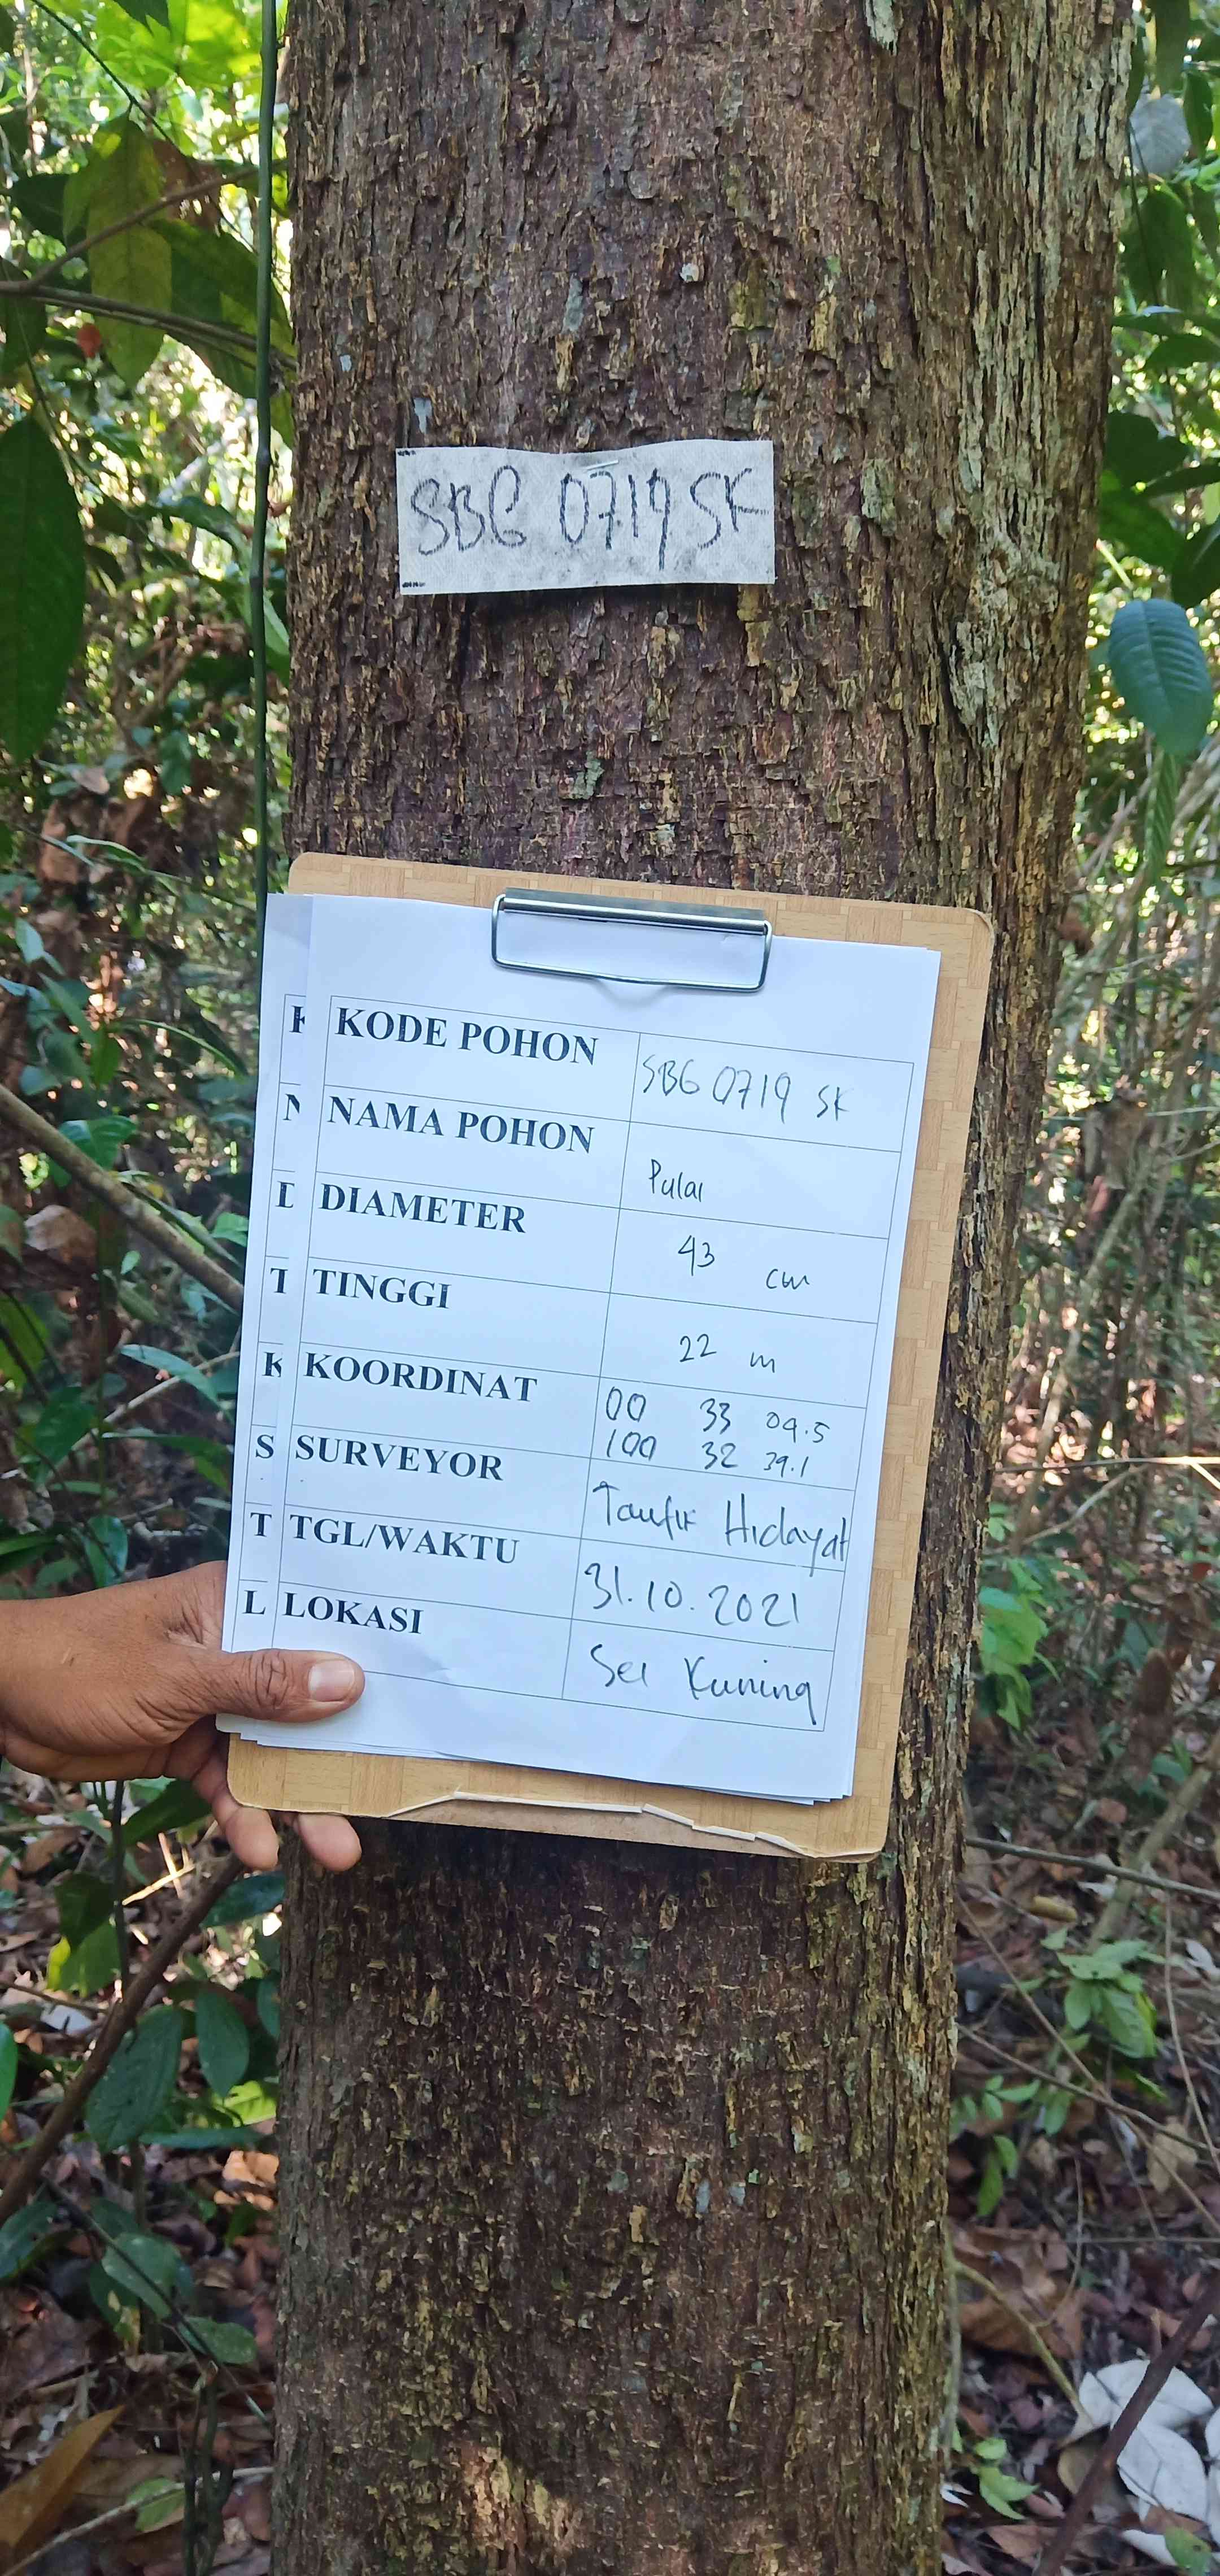 SBG 0719 SK
KODE POHON SBG 0719 SK
NAMA POHON Pulai
DIAMETER 43 cm
TINGGI 22 m
KOORDINAT 00 33 09.5
100 32 39.1
SURVEYOR Taufik Hidayat
TGL/WAKTU 31.10.2021
LOKASI Sei Kuning
K
N
D
T
K
S
T
L